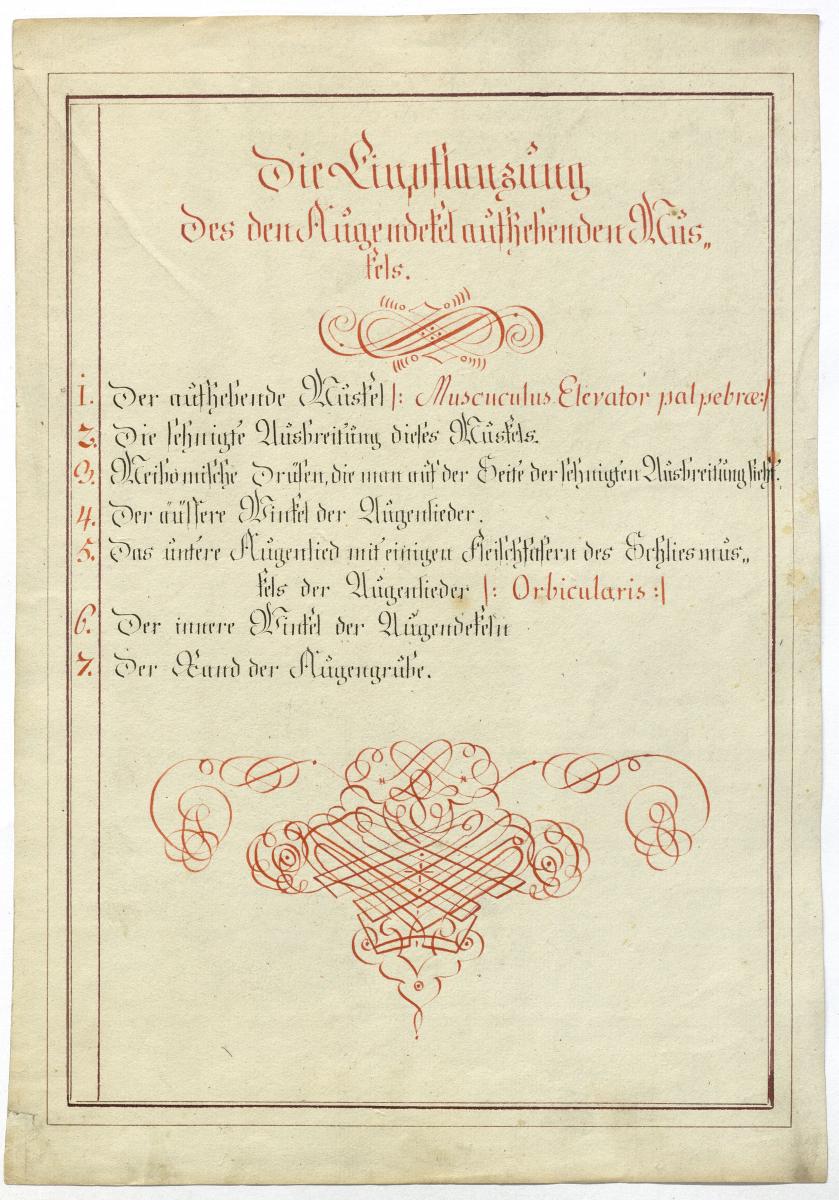 Die Einpflanzung
des den Augendekel aufhebenden Mus„
kels.
1. Der aufhebende Muskel |: Muscuculus Elevator palpebræ:|
2. Die sehnigte Ausbreitung dieses Muskels.
3. Meibomische Drüsen, die man auf der Seite der sehnigten Ausbreitung sieht.
4. Der äüssere Winkel der Augenlieder.
5. Das untere Augenlied mit einigen Fleischfasern des Schliesmus„
kels der Augenlieder |: Orbicularis :|
6. Der innere Winkel der Augendekeln
7. Der Rand der Augengrube.